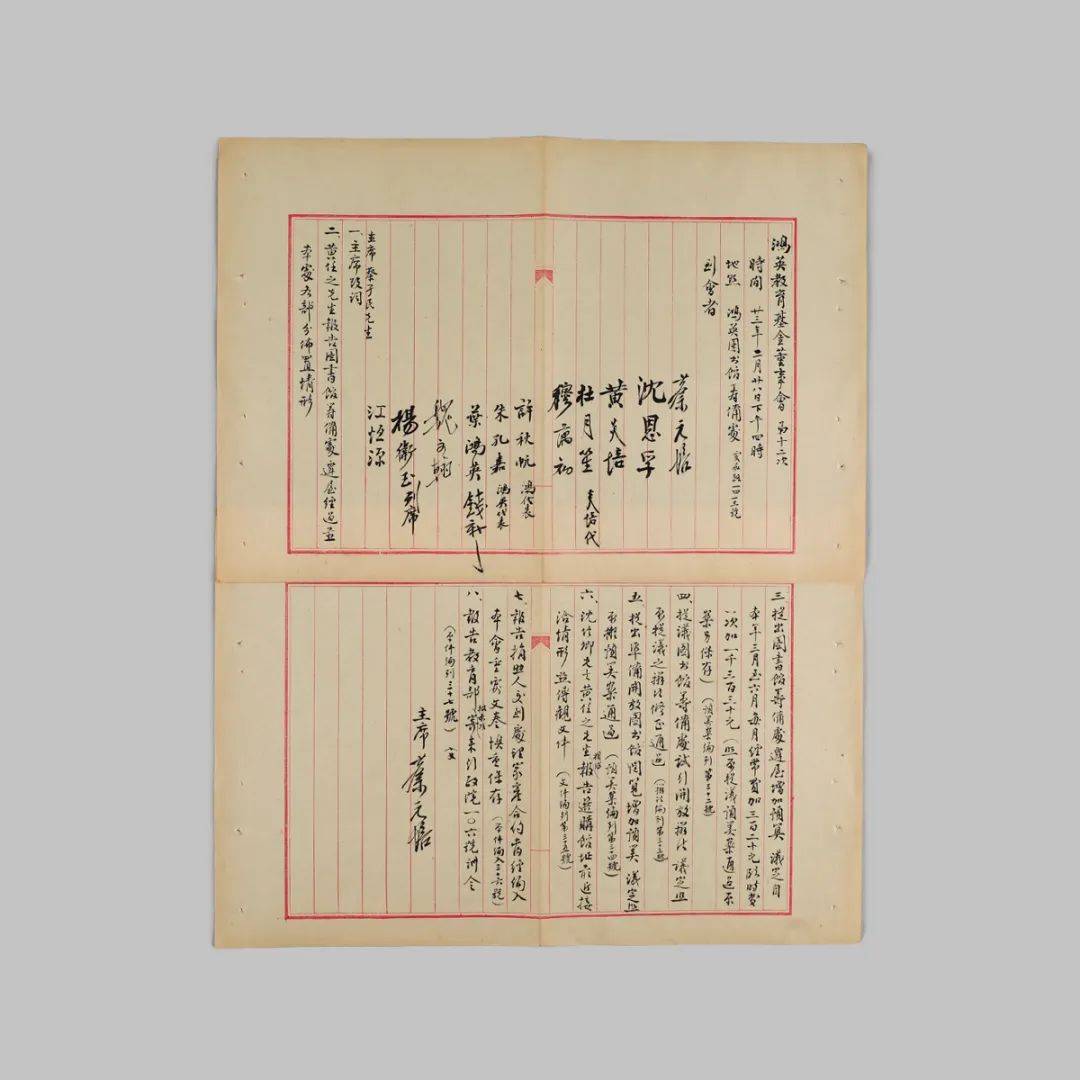 鴻英教育基金董事會 第十二次
時間 廿三年二月廿八日下午四時
地點 鴻英圖書館籌備處
到會者
蔡元培
沈恩孚
黃炎培
杜月笙 炎培代
穆藕初
許秋帆 鴻代表
朱孔嘉 鴻英代表
葉鴻英 錢新之
魏文翰
楊衛玉 列席
江恒源
主席 蔡孑民先生
一、主席致詞
二、黃任之先生報告圖書館籌備處遷屋經過並
本處各部分佈置情形
三、提出圖書館籌備處遷屋增加預算 議定自
本年三月至六月每月經常費加三百二十元臨時費
一次加一千三百三十元（照原提議預算案通過原
案另保存）（預算案編列第三十二號）
四、提議圖書館籌備處試行開放辦法 議定照
原提議之辦法修正通過（辦法編列第三十三號）
五、提出準備開放圖書館閱覽增加預算 議定照
原擬預算案通過（預算案編列第三十四號）
六、沈信卿先生黃任之先生報告選購館址最近接
洽情形並傳觀文件（文件編列第三十五號）
七、報告捐助人交到處理家產合約當經編入
本會重要文卷慎重保存（原件編入三十六號）
八、報告教育部寄來行政院一〇六號訓令
（原件編列三十七號）
主席 蔡元培